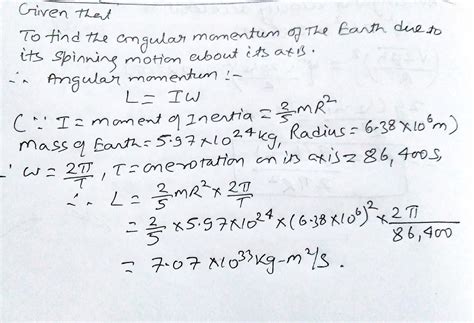 Given that
To find the angular momentum of The Earth due to
its spinning motion about its axis.
∴ Angular momentum :-
L = Iω
(∵ I = moment of Inertia = 2/5 mR²
mass of Earth = 5.97 × 10²⁴ kg, Radius = 6.38 × 10⁶ m)
∴ ω = 2π/T, T = one rotation on its axis = 86,400 s,
∴ L = 2/5 mR² × 2π/T
= 2/5 × 5.97 × 10²⁴ × (6.38 × 10⁶)² × 2π/86,400
= 7.07 × 10³³ kg-m²/s.